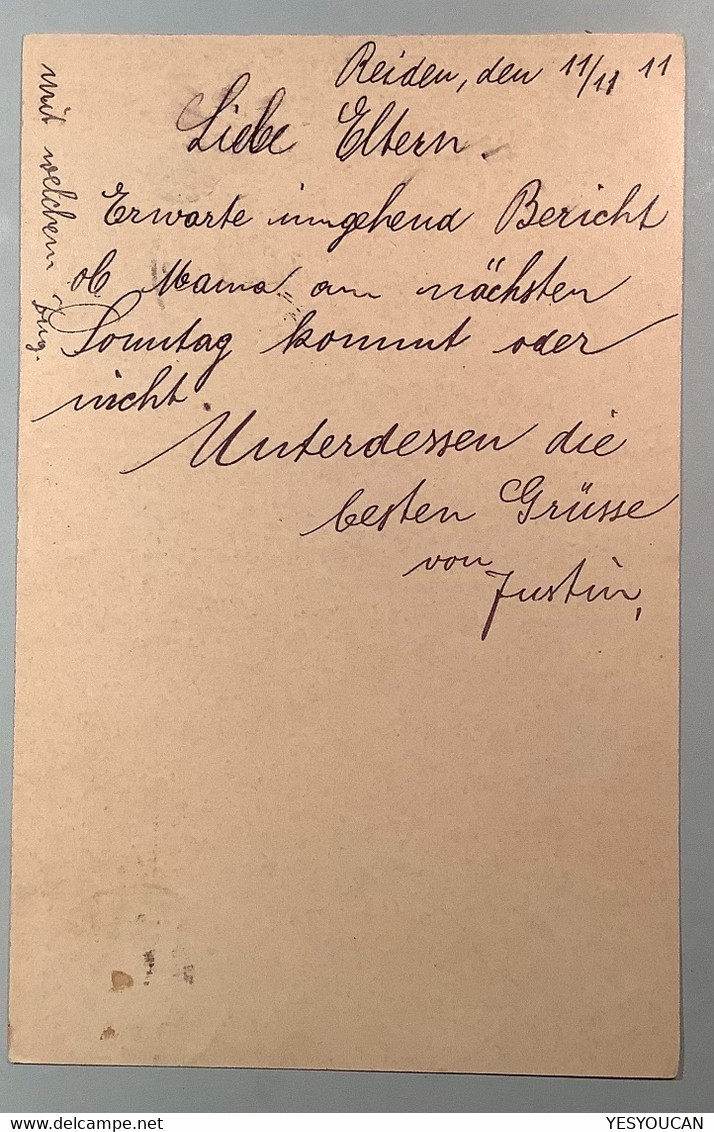 Reiden, den 11/11 11
Liebe Eltern.
Erwarte umgehend Bericht
ob Mama am nächsten
Sonntag kommt oder
nicht.
Unterdessen die
besten Grüsse
von
Justin,
mit welchem Zug.
YESYOUCAN